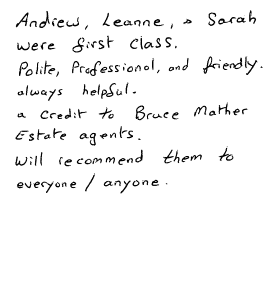 Andrew, Leanne, & Sarah
were first class.
Polite, Professional, and friendly.
always helpful.
a credit to Bruce Mather
Estate agents.
Will recommend them to
everyone / anyone.